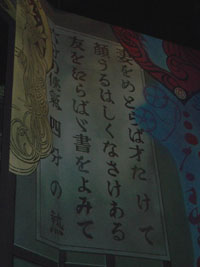 妻をめとらば才たけて
顔うるはしくなさけある
友を　らばゞ書をよみて
六分の侠気四分の熱